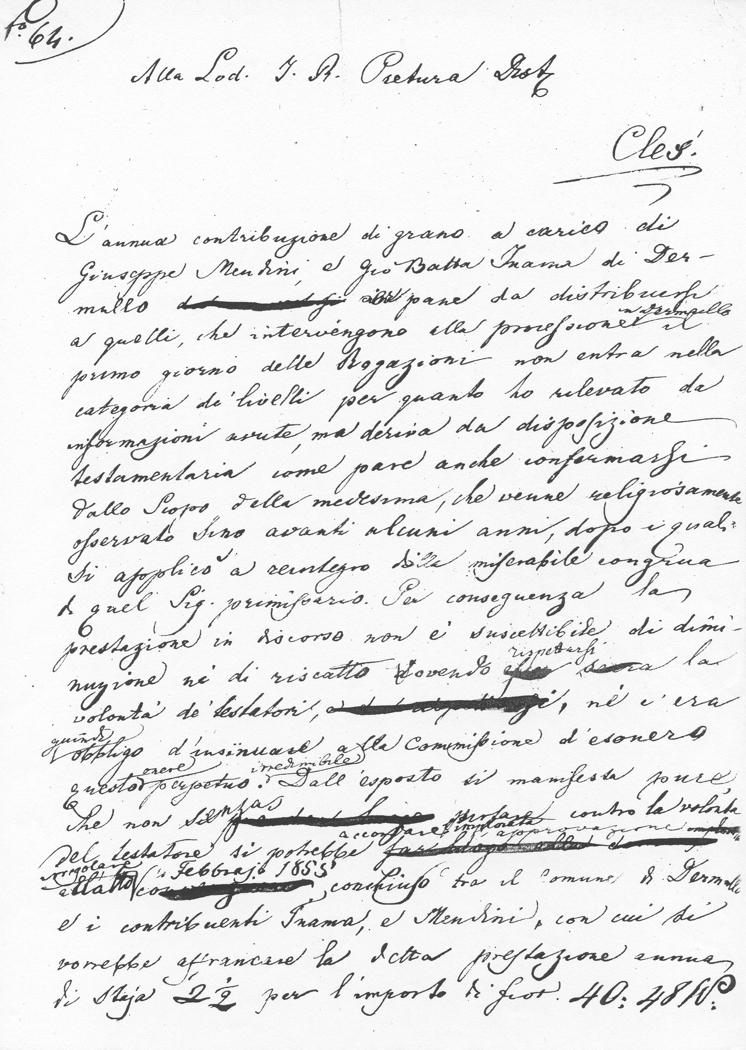 64.
Alla Lod. I. R. Pretura Dist.
Cles.
L'annua contribuzione di grano a carico di
Giuseppe Mendini, e Gio Batta Inama di Der-
mullo pane da distribuirsi
a quelli, che intervengono alla processione in Dermullo il
primo giorno delle Rogazioni non entra nella
categoria di livelli per quanto ho rilevato da
informazioni avute, ma deriva da disposizione
testamentaria come pare anche confermarsi
dallo scopo della medesima, che venne religiosamente
osservato sino avanti alcuni anni, dopo i quali
si applicò a reintegro della miserabile congrua
di quel Sig. primissario. Per conseguenza la
prestazione in discorso non è suscettibile di dimi-
nuzione nè di riscatto dovendo rispettarsi la
volontà de' testatori, nè c'era
quindi obbligo d'insinuare alla Commissione d'esonero
questo onere perpetuo irredimibile. Dall'esposto si manifesta pure,
che non senza contro la volontà
del testatore si potrebbe accordare l' approvazione
all'atto Febbrajo 1855 conchiuso tra il Comune di Dermullo
e i contribuenti Inama, e Mendini, con cui si
vorrebbe affrancare la detta prestazione annua
di staja 2 1/2 per l'importo di fior. 40: 48